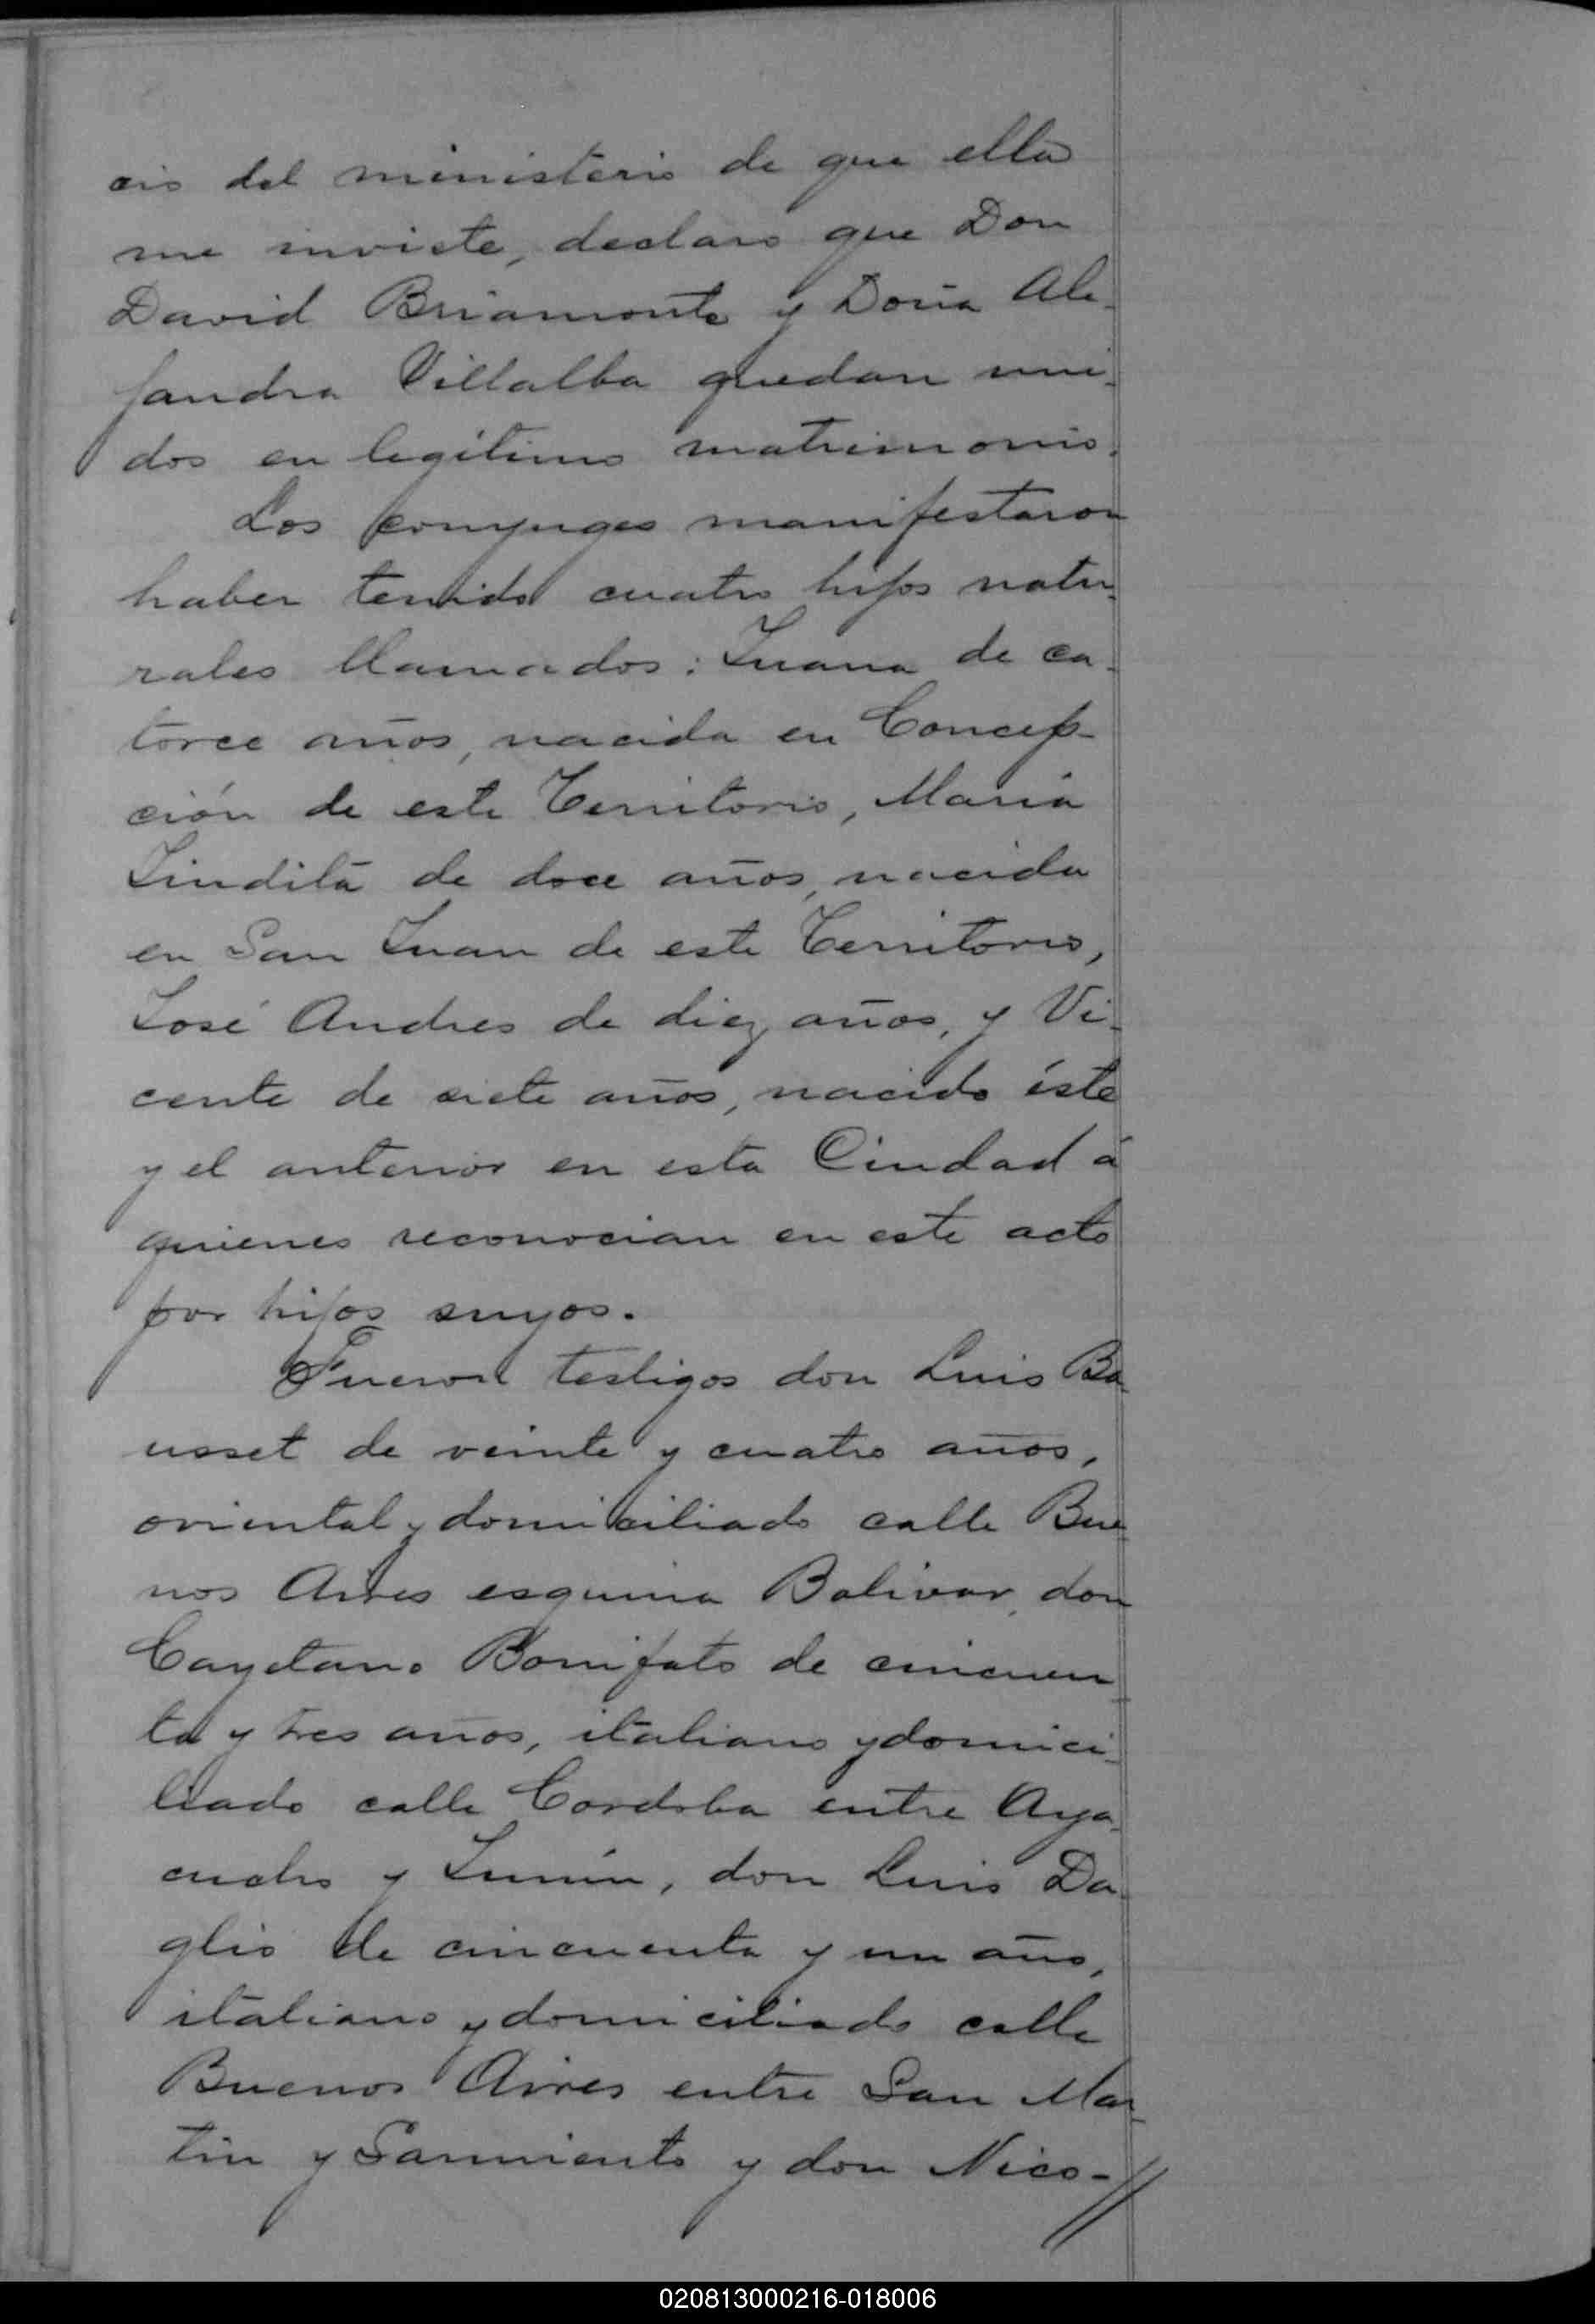 cio del ministerio de que ella
me inviste, declaro que Don
David Briamonte y Doña Ale-
jandra Villalba quedan uni-
dos en legítimo matrimonio.
Los conyuges manifestaron
haber tenido cuatro hijos natu-
rales llamados: Juana de ca-
torce años, nacida en Concep-
ción de este Territorio, María
de doce años, nacida
en San Juan de este Territorio,
José Andres de diez años, y Vi-
cente de siete años, nacido éste
y el anterior en esta Ciudad á
quienes reconocian en este acto
por hijos suyos.
Fueron testigos don Luis Ba-
usset de veinte y cuatro años,
oriental y domiciliado calle Bue
nos Aires esquina Bolivar, don
Cayetano Bonifato de cincuen
ta y tres años, italiano y domici-
liado calle Cordoba entre Aya-
cucho y Junín, don Luis Da-
glio de cincuenta y un año,
italiano y domiciliado calle
Buenos Aires entre San Mar-
tin y Sarmiento y don Nico-//
020813000216-018006